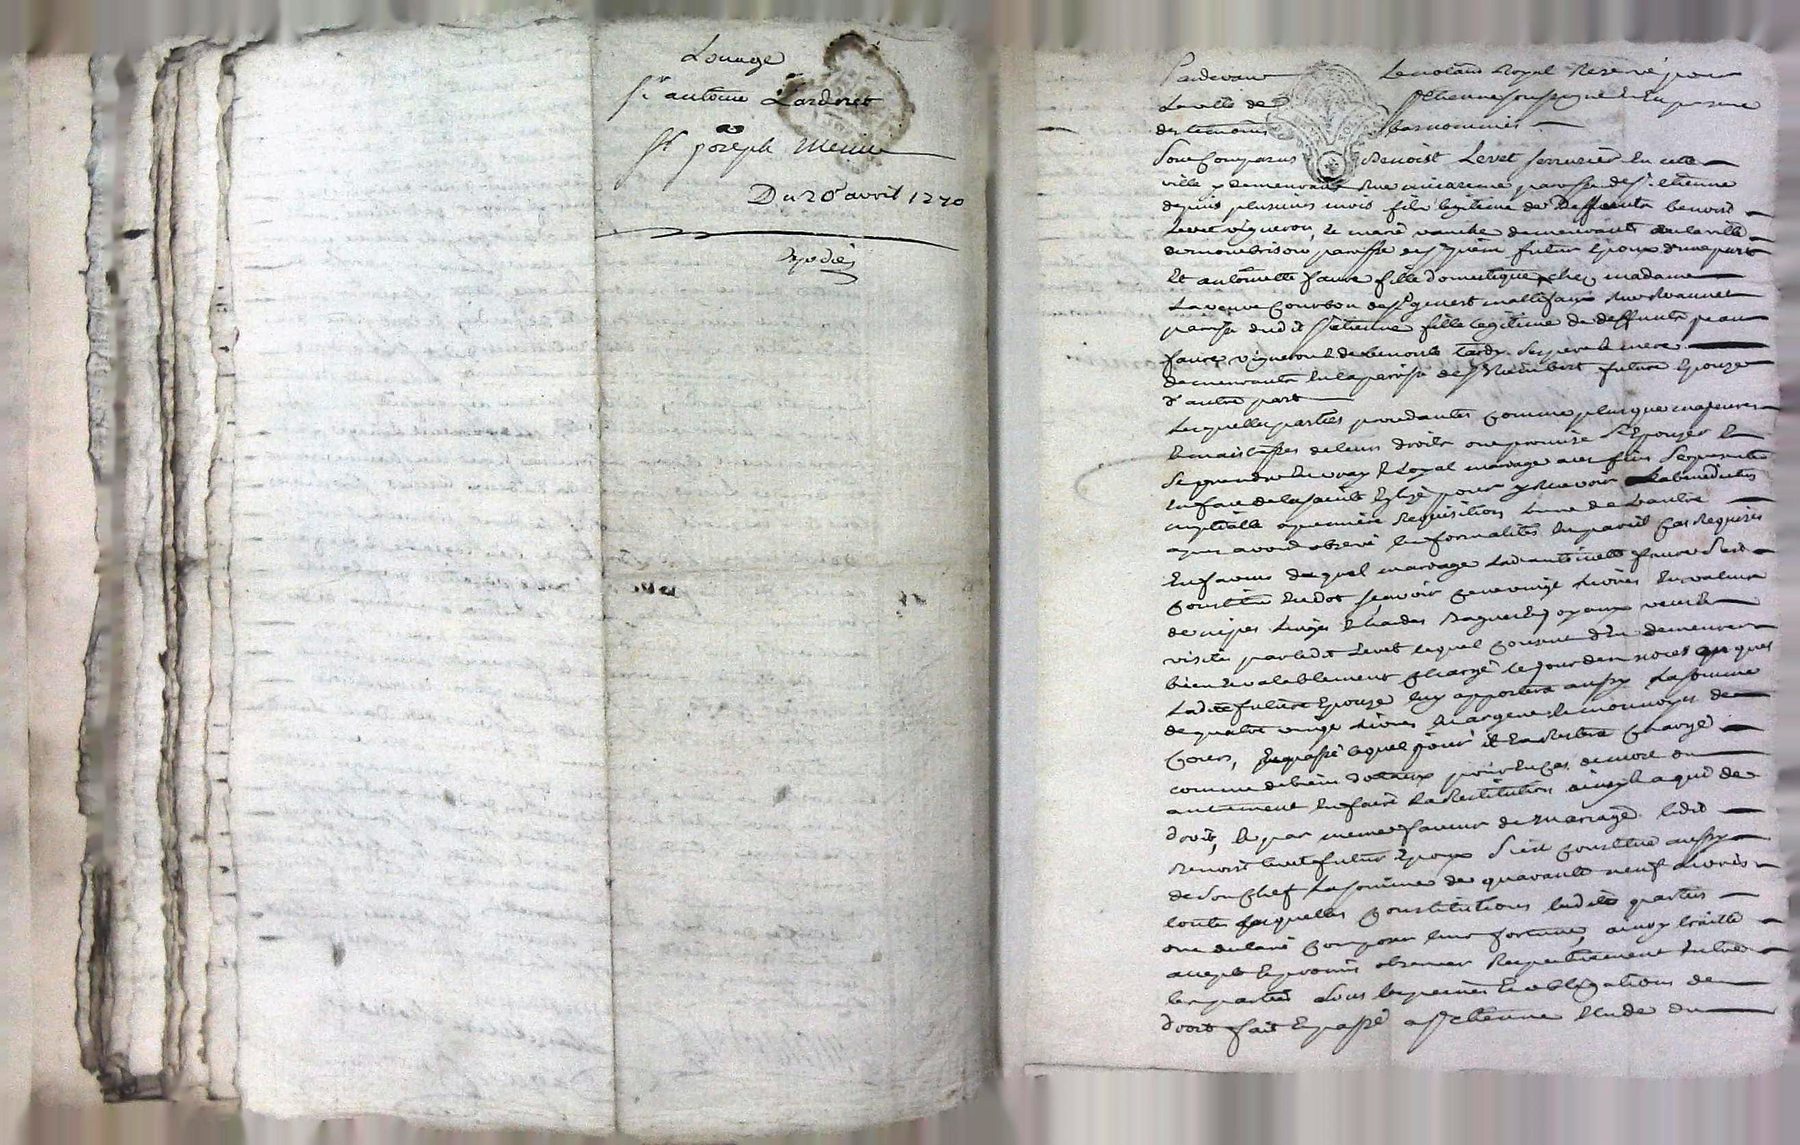 Louage
Sr antoine Larderet
a
Sr joseph
Du 20 avril 1770
Expedié
Pardevant Le notaire Royal Reservé pour
La ville de St Etienne soussigné Et En presence
des temoins bas nommés
Sont Comparus Benoist Levet serrurier En cette
ville y demeurant Rue paroisse de St etienne
depuis plusieurs mois fils legitime de Deffunts benoist
Levet vigneron, et marie demeurants en la ville
de montbrison paroisse futur Epoux d'une part
Et antoinette faure fille domestique chez madame
La veuve Courbon de St genest Rue Roannet
paroisse dudit St etienne fille legitime de deffunts jean
faure vigneron Et de benoite tardy ses pere et mere
demeurants En la paroisse de St Rambert future Epouze
d'autre part
Lesquelles parties procedantes comme plus que majeures
Et maistresses de leurs droits ont promis de s'Epouzer Et
se prendre En vray Et Loyal mariage a ces fins se presenter
En face de la sainte Eglise pour y Recevoir La benediction
nuptialle a premiere Requisition L'une de L'autre
apres avoir observé les formalités En pareil Cas Requises
En faveur duquel mariage Ladte antoinette faure s'est
Constitué En dot sçavoir Cent vingt Livres En valeur
de nipes Linges Et hardes Bagues Et joyaux veues Et
visités par ledit Levet lequel consent d'En demeurer
bien Et valablement Chargé le jour des noces
Ladte future Epouze luy apportera aussy La somme
de quatre vingt Livres En argent Et monnoyes de
Cours, Et passé lequel jour il En Restera Chargé
comme de bien dotaux pour En Cas de mort ou
autrement En faire La Restitution ainsy Et a qui de
droit, Et par meme faveur de Mariage ledit
Benoist Levet futur Epoux s'est Constitué aussy
de son Chef La somme de quarante neuf Livres
toutes lesquelles Constitutions lesdites parties
ont declaré Composer leur fortune, ainsy traitté
accepté Et promis observer Respectivement Entre
les parties sous les peines Et obligations de
droit fait Et passé a St Etienne Etude du